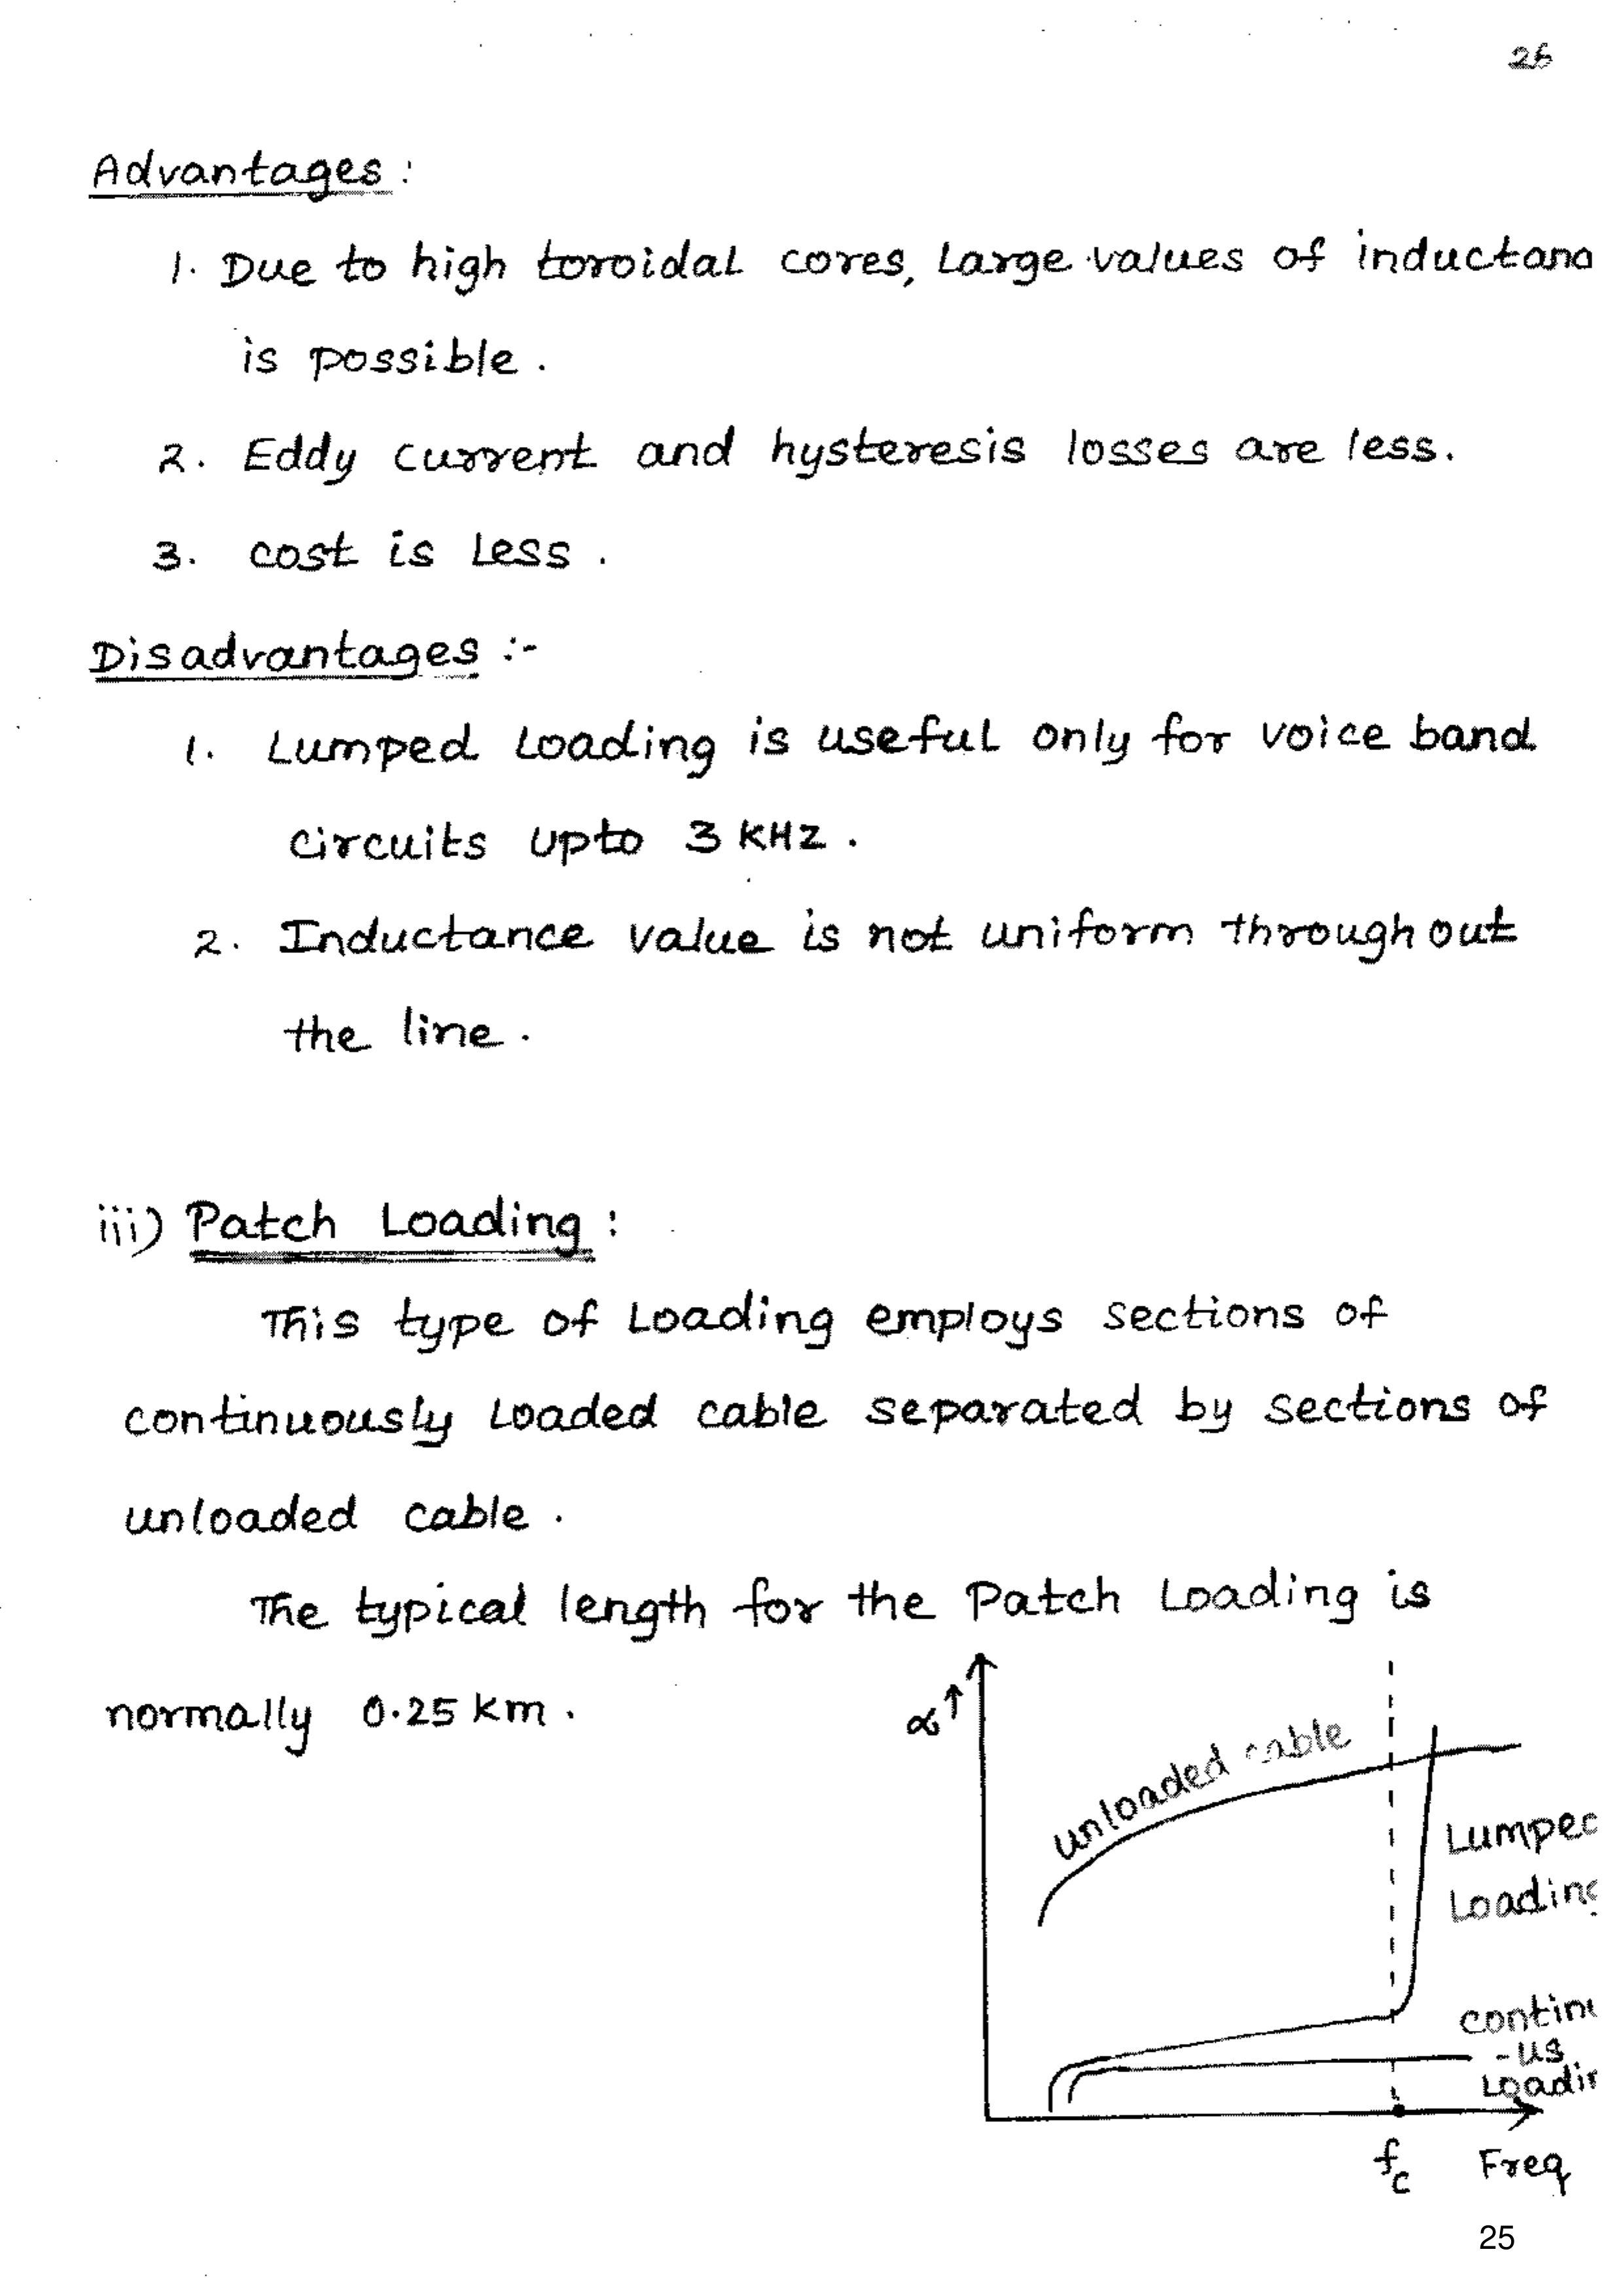 26
Advantages :
1. Due to high toroidal cores, Large values of inductanc
is possible .
2. Eddy current and hysteresis losses are less.
3. cost is Less .
Disadvantages :-
1. Lumped Loading is useful only for voice band
circuits upto 3 KHz .
2. Inductance value is not uniform throughout
the line .
iii) Patch Loading :
This type of Loading employs sections of
continuously Loaded cable separated by sections of
unloaded cable .
The typical length for the Patch Loading is
normally 0.25 km .
α↑
unloaded cable
Lumped
Loading
continu
-us
Loadin
fc
Freq
25